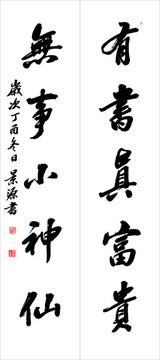 有書真富貴
無事小神仙
歲次丁酉冬日景源書